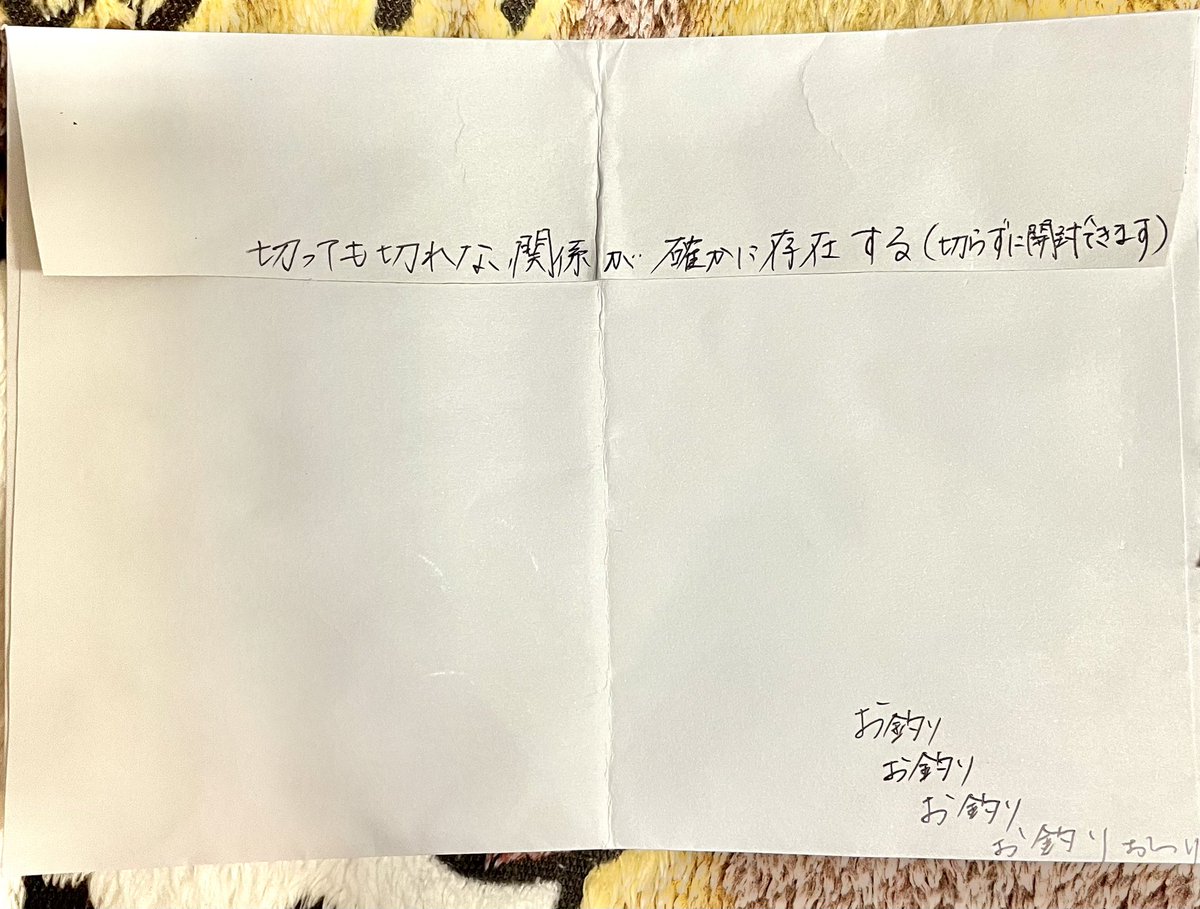 切っても切れない関係が確かに存在する(切らずに開封できます)
お釣り
お釣り
お釣り
お釣りおつり